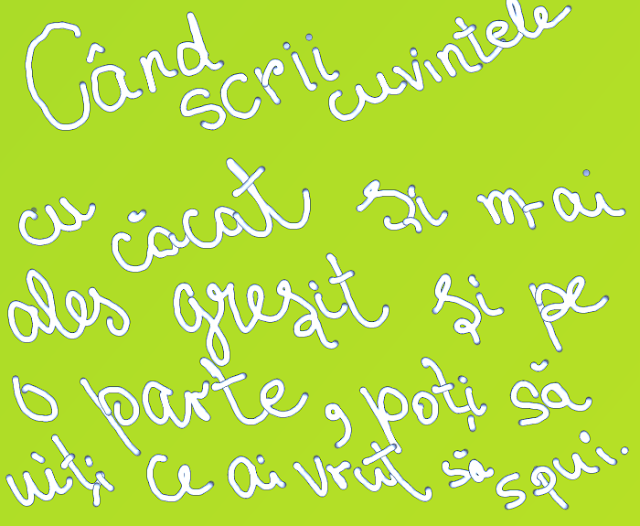 Când scrii cuvintele
cu căcat și m-ai
ales greșit și pe
o parte, poți să
uiți ce ai vrut să spui.